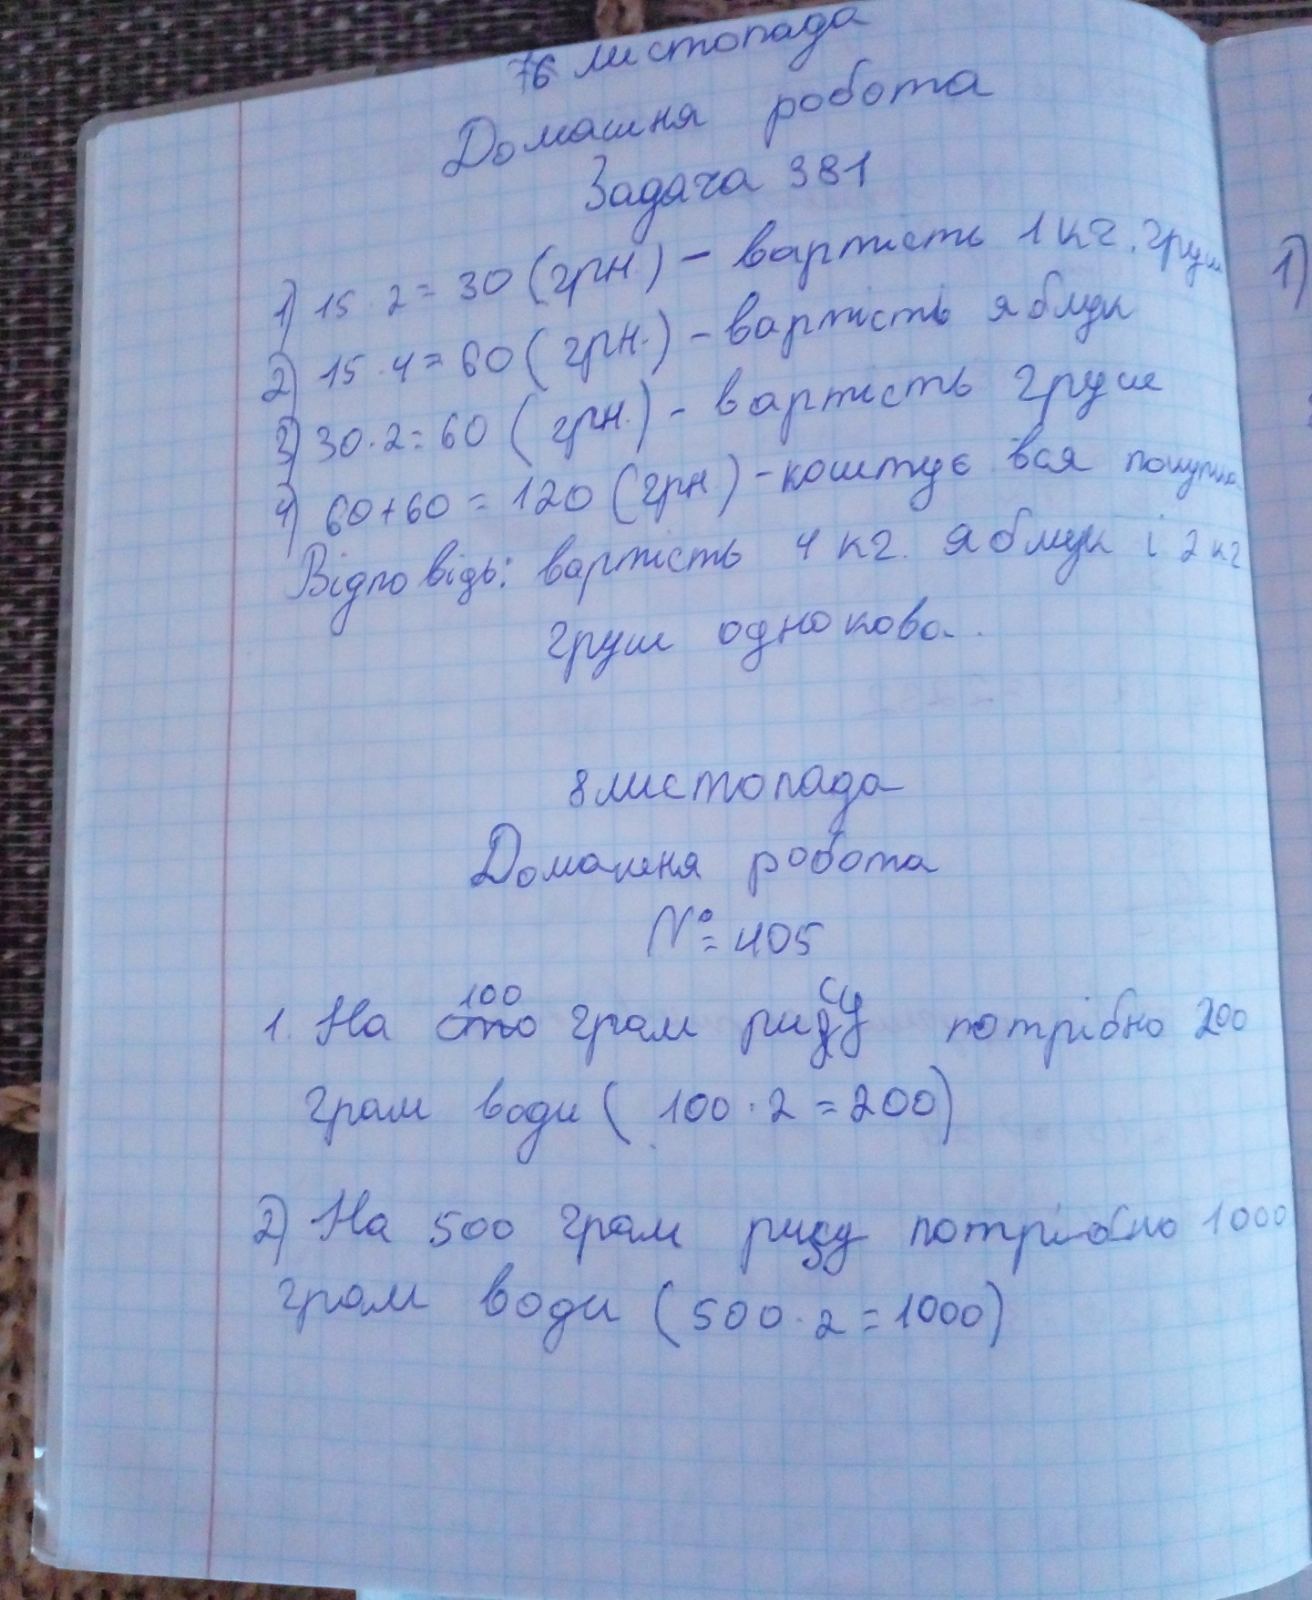 6 листопада
Домашня робота
Задача 381
1) 15 · 2 = 30 (грн.) – вартість 1 кг. груш
2) 15 · 4 = 60 (грн.) – вартість яблук
3) 30 · 2 = 60 (грн.) – вартість груш
4) 60 + 60 = 120 (грн.) – коштує вся покупка
Відповідь: вартість 4 кг. яблук і 2 кг
груш однокова.
8 листопада
Домашня робота
№ 405
1. На 100 грам рису потрібно 200
грам води ( 100 · 2 = 200)
2) На 500 грам рису потрібно 1000
грам води (500 · 2 = 1000)
1)